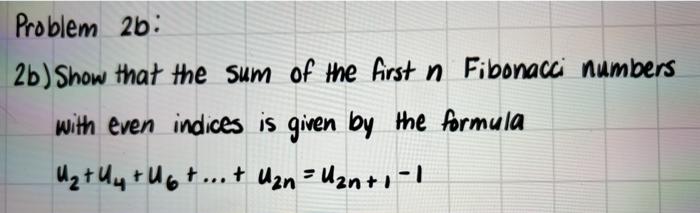 Problem 2b:
2b) Show that the sum of the first n Fibonacci numbers
with even indices is given by the formula
u₂+u₄+u₆+...+ u₂ₙ = u₂ₙ₊₁ -1